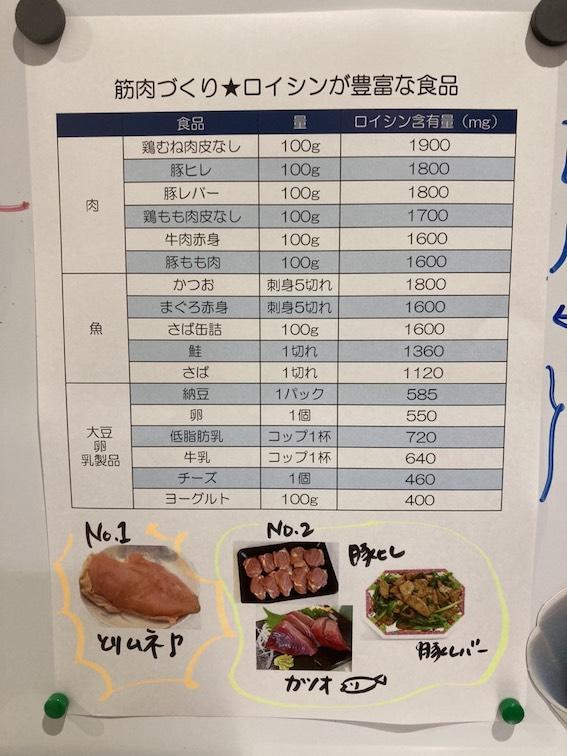 筋肉づくり★ロイシンが豊富な食品
食品 量 ロイシン含有量（mg）
肉
鶏むね肉皮なし 100g 1900
豚ヒレ 100g 1800
豚レバー 100g 1800
鶏もも肉皮なし 100g 1700
牛肉赤身 100g 1600
豚もも肉 100g 1600
魚
かつお 刺身5切れ 1800
まぐろ赤身 刺身5切れ 1600
さば缶詰 100g 1600
鮭 1切れ 1360
さば 1切れ 1120
大豆
卵
乳製品
納豆 1パック 585
卵 1個 550
低脂肪乳 コップ1杯 720
牛乳 コップ1杯 640
チーズ 1個 460
ヨーグルト 100g 400
No.1
とりムネ♪
No.2
豚ヒレ
カツオ
豚レバー